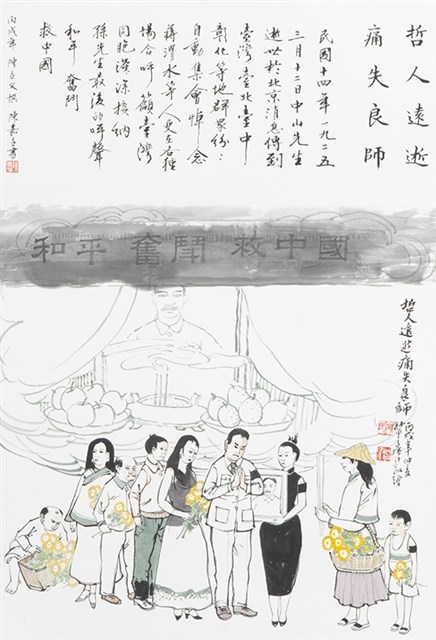 哲人遠逝
痛失良師
民國十四年一九二五
三月十二日中山先生
逝世於北京消息傳到
臺灣臺北臺中
彰化等地群眾紛:
自動集會悼念
蔣渭水等人更在各種
場合呼籲臺灣
同胞深深接納
孫先生最後的呼聲
和平 奮鬥
救中國
丙戌年
和平 奮鬥 救中國
哲人遠逝痛失良師